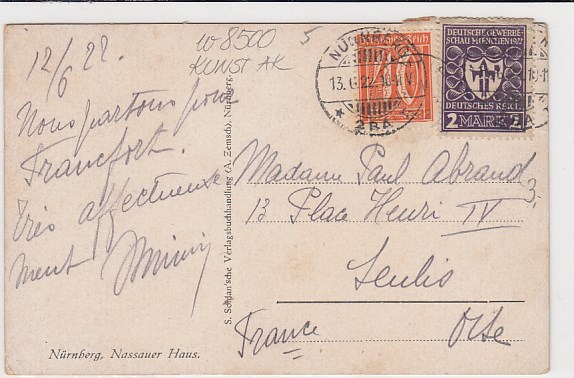 12/6 22.
Nous partons pour
Francfort.
Très affectueuse
ment
W 8500
KUNST AK
5
NÜRNBERG
13.6.22.10-11V.
* 2 BA
Deutsches Reich
DEUTSCHE GEWERBE
SCHAU MÜNCHEN 1922
DEUTSCHES REICH
2 MARK 2
S. Schlan'sche Verlagsbuchhandlung (A. Zemsch), Nürnberg.
Madame Paul Abrand
13 Place Henri IV
3.
Senlis
France
Oise
Nürnberg, Nassauer Haus.